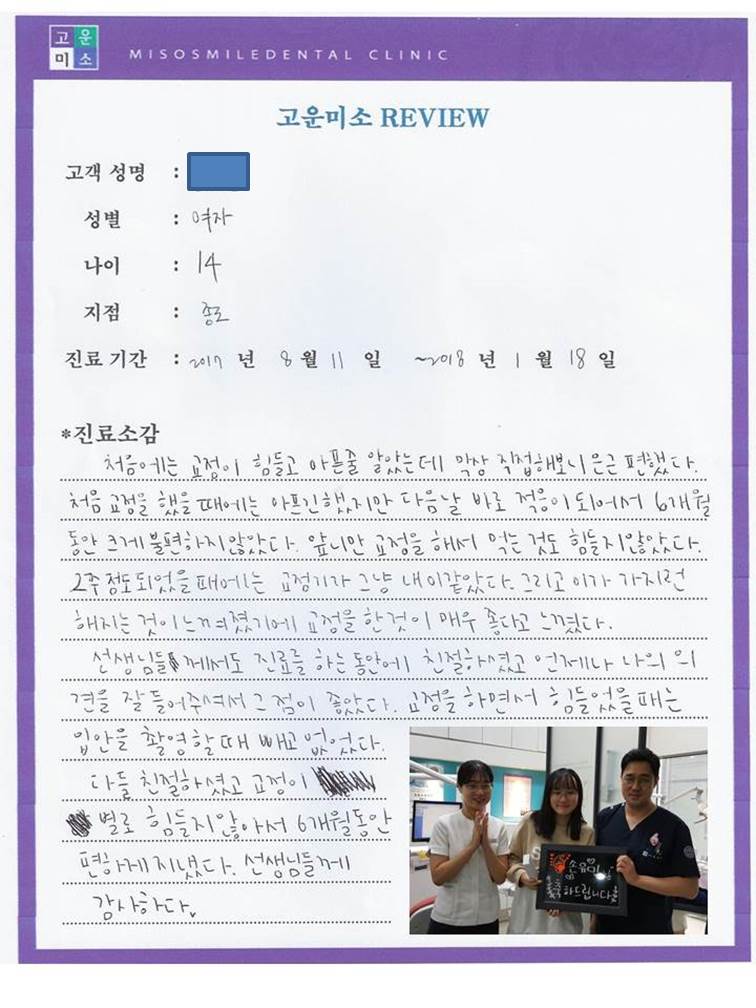 고운
미소
MISOSMILEDENTAL CLINIC
고운미소 REVIEW
고객 성명 :
성별 : 여자
나이 : 14
지점 : 종로
진료 기간 : 2017 년 8 월 11 일 ~2018 년 1 월 18 일
*진료소감
처음에는 교정이 힘들고 아픈줄 알았는데 막상 직접해보니은근 편했다.
처음 교정을 했을때에는 아프긴했지만 다음날 바로 적응이되어서 6개월
동안 크게 불편하지않았다. 앞니만 교정을 해서 먹는 것도 힘들지않았다.
2주정도되었을때에는 교정기가 그냥 내이같았다. 그리고 이가 가지런
해지는 것이느껴졌기에 교정을 한것이 매우 좋다고 느꼈다.
선생님들 께서도 진료를 하는동안에 친절하셨고 언제나 나의 의
견을 잘 들어주셔서 그점이 좋았다. 교정을 하면서 힘들었을때는
입안을 촬영할때 빼고 없었다.
다들 친절하셨고 교정이
별로 힘들지않아서 6개월동안
편하게지냈다. 선생님들께
감사하다.
손유미
하드립니다